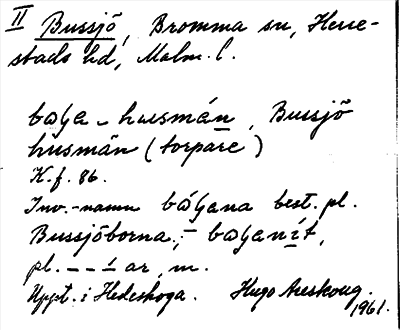 II Bussjö, Bromma sn, Herre-
stads hd, Malm. l.
boʒa - husmán, Bussjö
húsmän (torpare)
K.f. 86.
Inv.-namn bóʒana best. pl.
Bussjöborna, - boʒanít,
pl. - - ́ ar, m.
Uppt. i Hedeskoga. Hugo Areskoug.
1961.